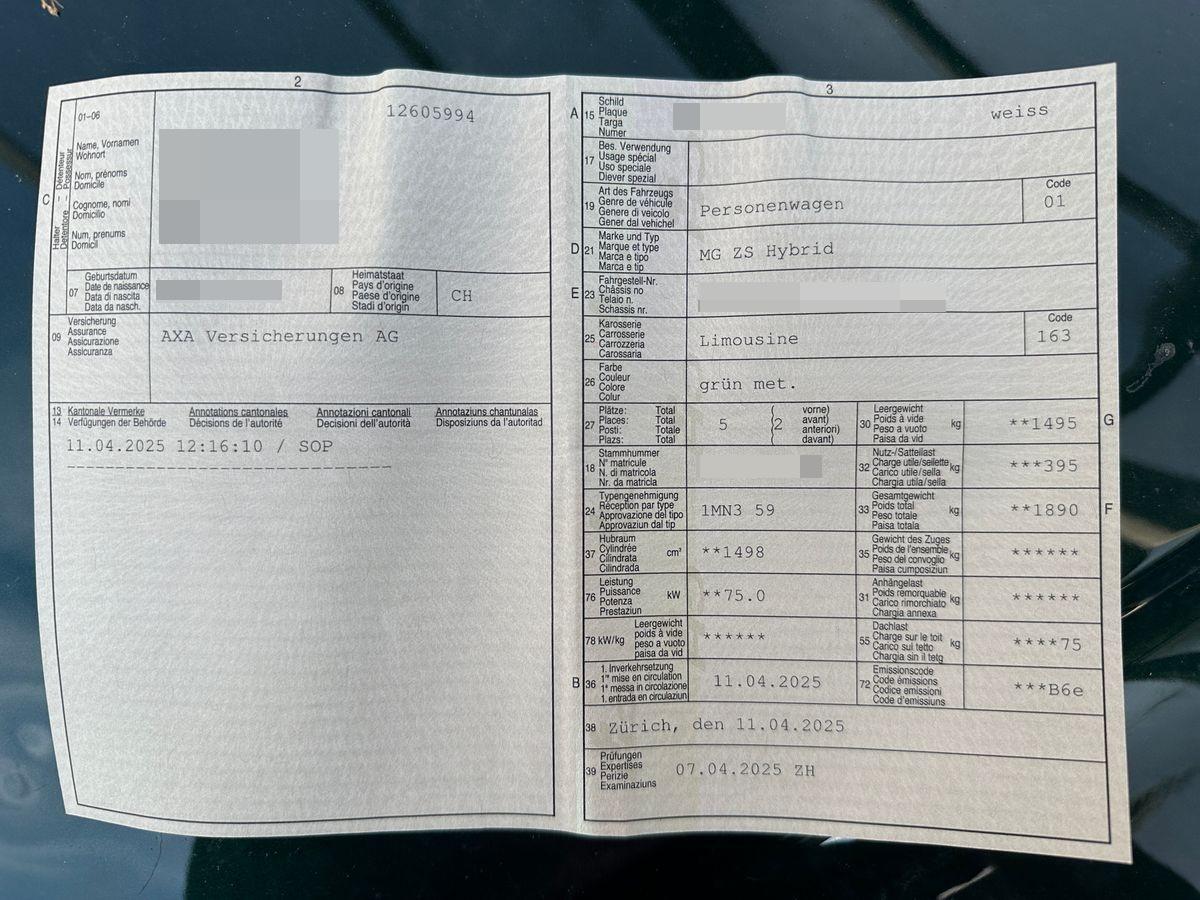 2
01-06
12605994
Name, Vornamen
Wohnort
Nom, prénoms
Domicile
Cognome, nomi
Domicilio
Num, prenums
Domicil
C
Halter – Détenteur
Detentore – Possessur
07
Geburtsdatum
Date de naissance
Data di nascita
Data da nasch.
08
Heimatstaat
Pays d'origine
Paese d'origine
Stadi d'origin
CH
09
Versicherung
Assurance
Assicurazione
Assicuranza
AXA Versicherungen AG
13 Kantonale Vermerke Annotations cantonales Annotazioni cantonali Annotaziuns chantunalas
14 Verfügungen der Behörde Décisions de l'autorité Decisioni dell'autorità Disposiziuns da l'autoritad
11.04.2025 12:16:10 / SOP
3
A 15
Schild
Plaque
Targa
Numer
weiss
17
Bes. Verwendung
Usage spécial
Uso speciale
Diever spezial
19
Art des Fahrzeugs
Genre de véhicule
Genere di veicolo
Gener dal vehichel
Personenwagen
Code
01
D 21
Marke und Typ
Marque et type
Marca e tipo
Marca e tip
MG ZS Hybrid
E 23
Fahrgestell-Nr.
Châssis no
Telaio n.
Schassis nr.
25
Karosserie
Carrosserie
Carrozzeria
Carossaria
Limousine
Code
163
26
Farbe
Couleur
Colore
Colur
grün met.
27
Plätze: Total
Places: Total
Posti: Totale
Plazs: Total
5
2
vorne)
avant)
anteriori)
davant)
30
Leergewicht
Poids à vide
Peso a vuoto
Paisa da vid
kg
**1495
G
18
Stammnummer
N° matricule
N. di matricola
Nr. da matricla
32
Nutz-/Sattellast
Charge utile/sellette
Carico utile/sella
Chargia utila/sella
kg
***395
24
Typengenehmigung
Réception par type
Approvazione del tipo
Approvaziun dal tip
1MN3 59
33
Gesamtgewicht
Poids total
Peso totale
Paisa totala
kg
**1890
F
37
Hubraum
Cylindrée
Cilindrata
Cilindrada
cm³
**1498
35
Gewicht des Zuges
Poids de l'ensemble
Peso del convoglio
Paisa cumposiziun
kg
******
76
Leistung
Puissance
Potenza
Prestaziun
kW
**75.0
31
Anhängelast
Poids remorquable
Carico rimorchiato
Chargia annexa
kg
******
78 kW/kg
Leergewicht
poids à vide
peso a vuoto
paisa da vid
******
55
Dachlast
Charge sur le toit
Carico sul tetto
Chargia sin il tetg
kg
****75
B 36
1. Inverkehrsetzung
1re mise en circulation
1a messa in circolazione
1. entrada en circulaziun
11.04.2025
72
Emissionscode
Code émissions
Codice emissioni
Code d'emissiuns
***B6e
38 Zürich, den 11.04.2025
39
Prüfungen
Expertises
Perizie
Examinaziuns
07.04.2025 ZH